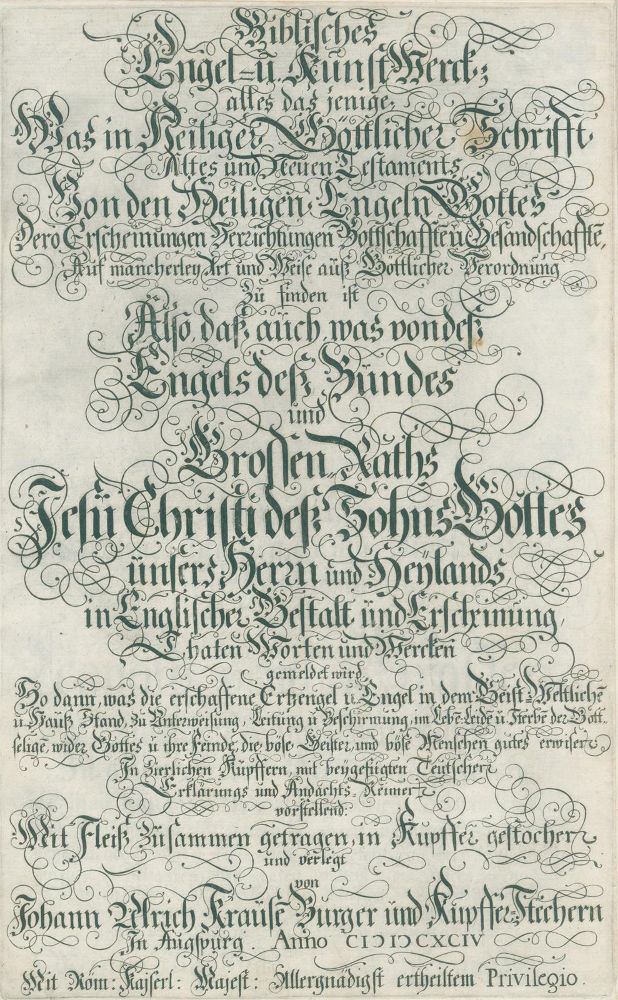 Biblisches
Engel- u. Kunst Werck;
alles das jenige,
Was in Heiliger Göttlicher Schrifft
Altes und Neuen Testaments
Von den Heiligen Engeln Gottes
Dero Erscheinungen Verrichtungen Bottschafften Gesandschaffte,
Auf mancherley Art und Weise auß Göttlicher Verordnung
Zu finden ist
Also, daß auch, was von deß
Engels deß Bundes
und
Grossen Raths
Jesu Christi deß Sohns Gottes
unsers Herrn und Heÿlands,
in Englischer Gestalt und Erscheinung,
Thaten Worten und Wercken
gemeldet wird
So dann, was die erschaffene Ertzengel u. Engel in dem Geist- Weltliche
u Hauß Stand, Zu Unterweisung, Leitung u Beschirmung, im Lebe- Leide u Sterbe der Gott-
selige, wider Gottes u ihre Feinde, die böse Geister und böse Menschen gutes erwisen,
In Zierlichen Kupffern, mit beygefügten Teutschen
Erklärungs und Andachts-Reimen
vorstellend:
Mit Fleiß Zusammen getragen, in Kupffer gestochen
und verlegt
von
Johann Ulrich Krausen Burger und Kupffer-Stechern
In Augspurg. Anno CIↃ IↃ CXCIV
Mit Röm: Kaÿserl: Majest: Allergnädigst ertheiltem Privilegio.